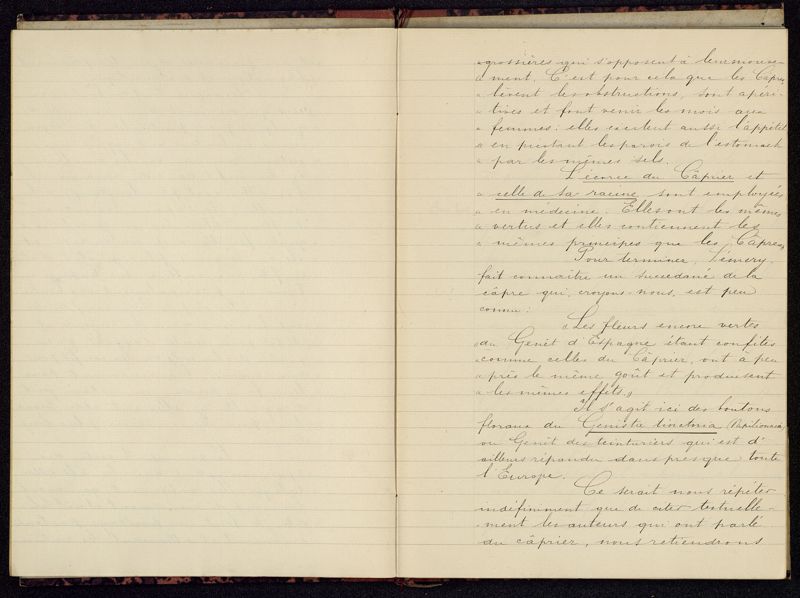 « grossières qui s'opposent à leur mouve-
« ment. C'est pour cela que les Câpres
« lèvent les obstructions, sont apéri-
« tives et font venir les mois aux
« femmes: elles excitent aussi l'appétit
« en picotant les parois de l'estomach
« par les mêmes sels.
L'écorce du Câprier et
« celle de sa racine sont employées
« en médecine. Elles ont les mêmes
« vertus et elles contiennent les
« mêmes principes que les Câpres.
Pour terminer, Lémery,
fait connaître un succedané de la
câpre qui, croyons-nous, est peu
connu:
« Les fleurs encore vertes
« du Genêt d'Espagne étant confites
« comme celles du Câprier, ont à peu
« près le même goût et produisent
« les mêmes effets. »
Il s'agit ici des boutons
floraux du Genista tinctoria (Papilionacées)
ou Genêt des teinturiers qui est d'
ailleurs répandu dans presque toute
l'Europe.
Ce serait nous répéter
indéfiniment que de citer textuelle-
-ment les auteurs qui ont parlé
du câprier, nous retiendrons